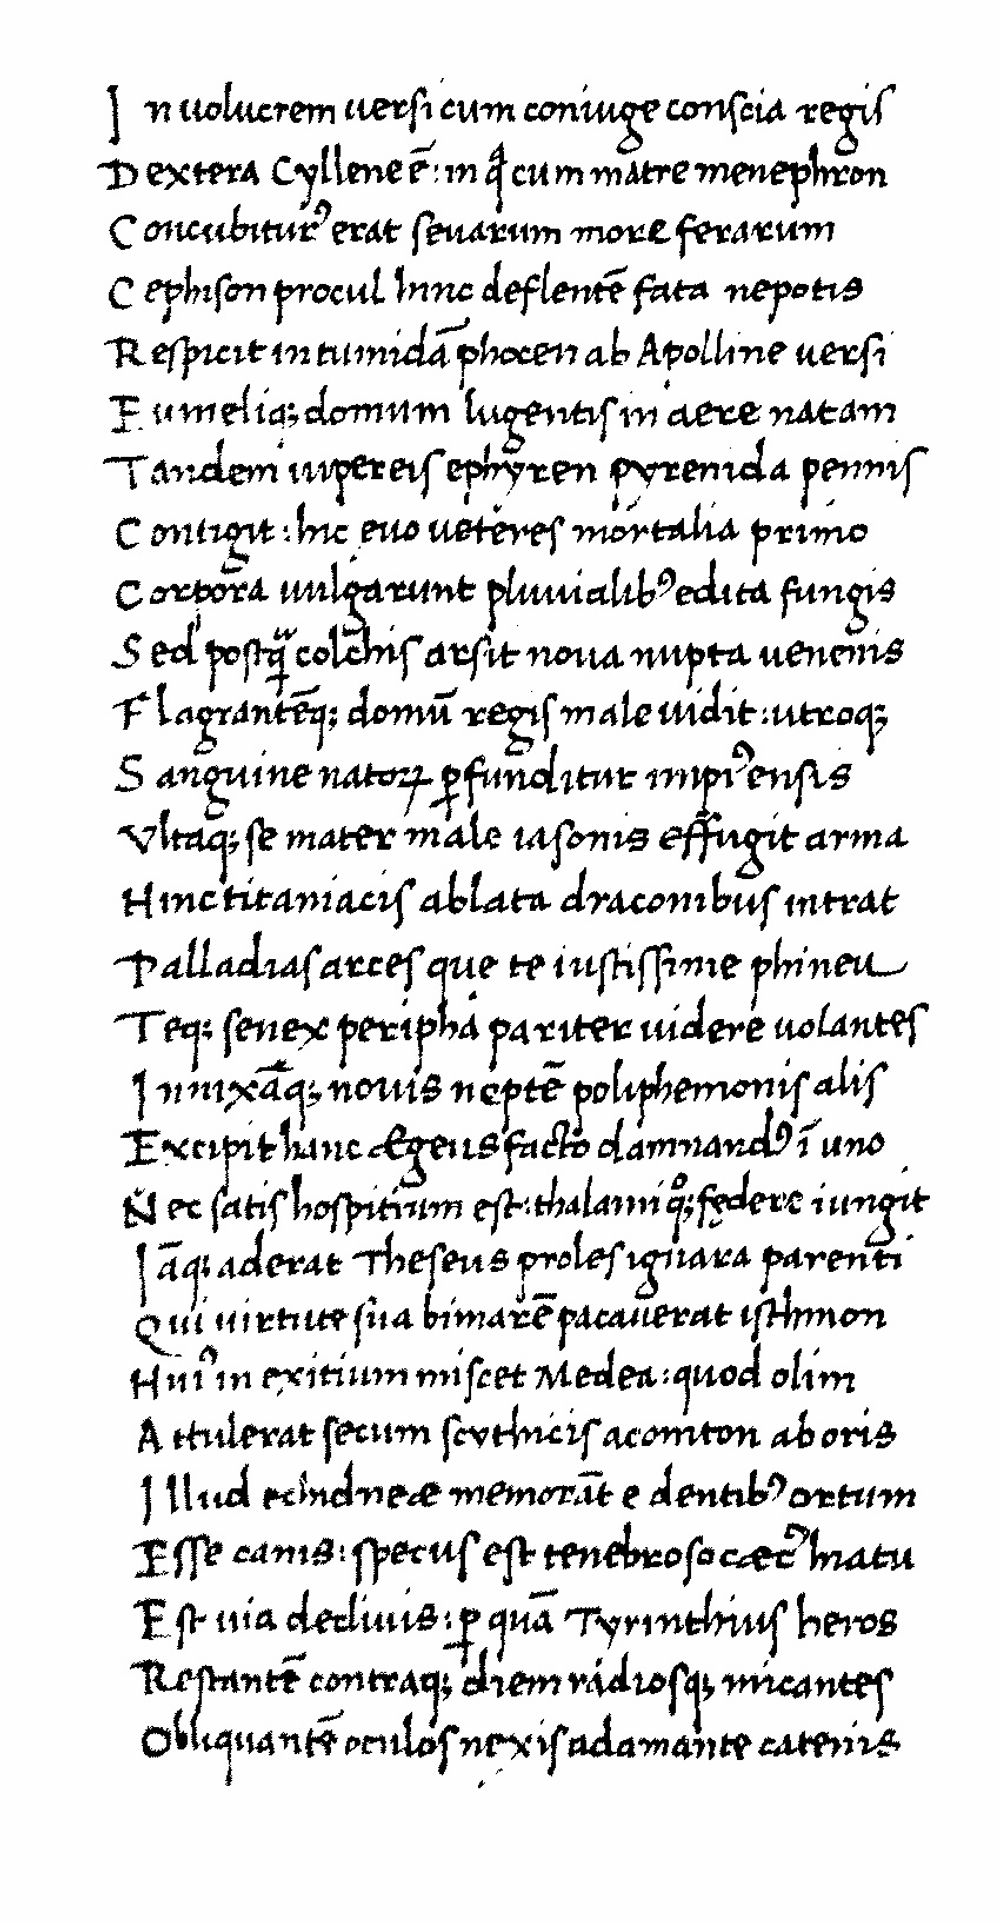 In uolucrem uersi cum coniuge conscia regis
Dextera Cyllene ē: in qᷓ cum matre menephron
Concubiturꝰ erat seuarum more ferarum
Cephison procul hinc deflentē fata nepotis
Respicit in tumidā phocen ab Apolline uersi
Eumeliq; domum lugentis in aere natam
Tandem uipereis ephyren pyrenida pennis
Contigit: hic euo ueteres mortalia primo
Corpora uulgarunt pluuialibꝰ edita fungis
Sed postqᷓ colchis arsit noua nupta uenenis
Flagrantēq; domū regis male uidit: utroq;
Sanguine natoꝝ ꝑfunditur impiꝰ ensis
Vltaq; se mater male iasonis effugit arma
Hinc titaniacis ablata draconibus intrat
Palladias arces que te iustissime phineu
Teq; senex peripha pariter uidere uolantes
Innixāq; nouis neptē poliphemonis alis
Excipit hanc Ægeus facto damnandꝰ ī uno
Nec satis hospitium est: thalami qͦ; fędere iungit
Iāq; aderat Theseus proles ignara parenti
Qui uirtute sua bimarē pacauerat isthmon
Huiꝰ in exitium miscet Medea: quod olim
Attulerat secum scythicis aconiton ab oris
Illud echidneæ memorāt e dentibꝰ ortum
Esse canis: specus est tenebroso cæcꝰ hiatu
Est uia decliuis: ꝑ quā Tyrinthius heros
Restantē contraq; diem radiosq; micantes
Obliquantē oculos nexis adamante catenis